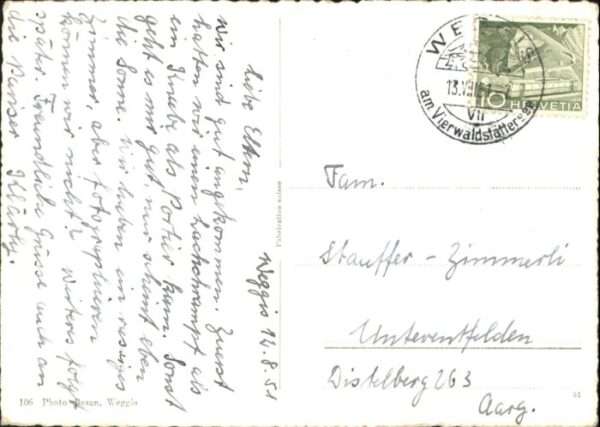 Weggis 12.8.51
Liebe Eltern,
Wir sind gut angekommen. Zuerst
hatten wir einen Lachkrampf als
ein Knabe als Portier kam. Sonst
geht es mir gut, nur scheint eben
die Sonne. Wir haben ein riesiges
Zimmer, aber fotographieren
können wir nicht! Weiteres folgt
später. Freundliche Grüsse auch an
die
Klärly.
WEGGIS
13.VIII.51
VII
am Vierwaldstättersee
10 HELVETIA
Fam.
Stauffer-Zimmerli
Unterentfelden
Distelberg 263
Aarg.
Fabrication suisse
106 Photo Weggis